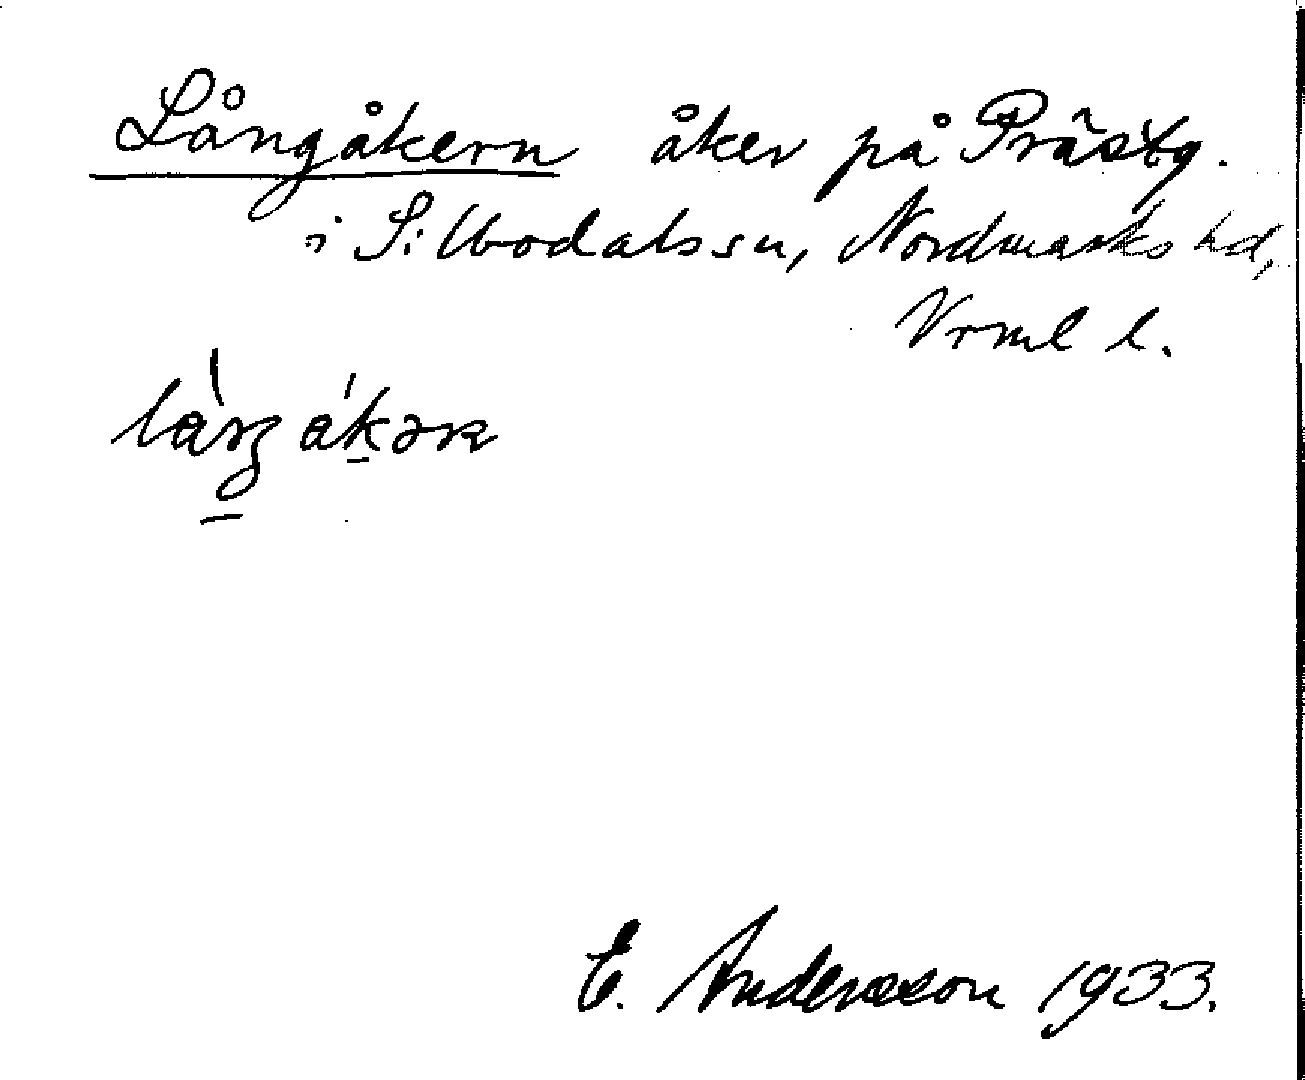 Långåkern åker på Prästg.
i Silbodals sn, Nordmarks hd,
Vrml l.
E. Andersson 1933.